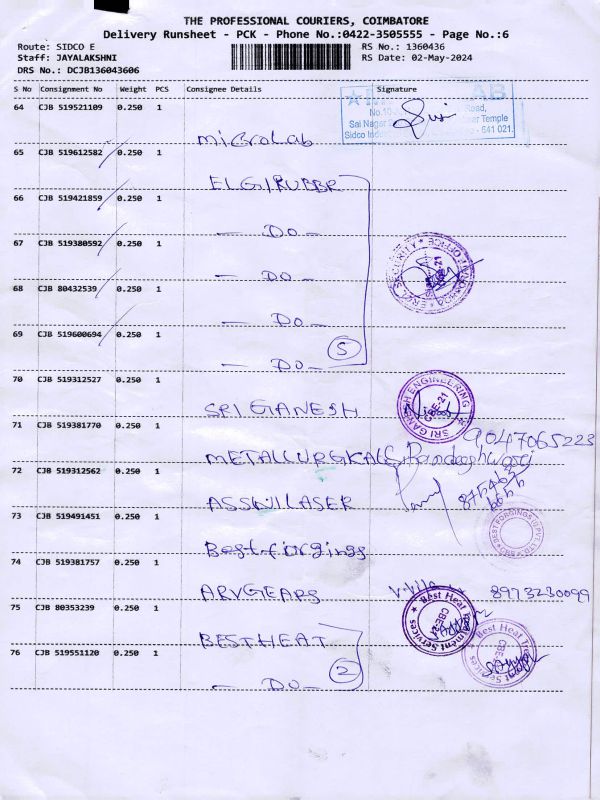 THE PROFESSIONAL COURIERS, COIMBATORE
Delivery Runsheet - PCK - Phone No.:0422-3505555 - Page No.:6
Route: SIDCO E RS No.: 1360436
Staff: JAYALAKSHNI RS Date: 02-May-2024
DRS No.: DCJB136043606
S No Consignment No Weight PCS Consignee Details Signature
64 CJB 519521109 0.250 1
AB
No.10 Road,
Sai Nagar Temple
Sidco Indus - 641 021.
MicroLab
65 CJB 519612582 0.250 1
ELGI RUBBR
66 CJB 519421859 0.250 1
- DO -
67 CJB 519380592 0.250 1
- DO -
68 CJB 80432539 0.250 1
- DO -
69 CJB 519600694 0.250 1
- DO - 5
70 CJB 519312527 0.250 1
SRI GANESH
SRI GANESH ENGINEERING
CBE-21
71 CJB 519381770 0.250 1
9047065223
METALLURGICALS
72 CJB 519312562 0.250 1
ASSWILASER
73 CJB 519491451 0.250 1
BEST FORGINGS (I) PVT LTD
Best forgings
74 CJB 519381757 0.250 1
ARVGEARS 8973230099
75 CJB 80353239 0.250 1
Best Heat Treatment Services
CBE-21
BESTHEAT
76 CJB 519551120 0.250 1
Best Heat Treatment Services
- DO - 2